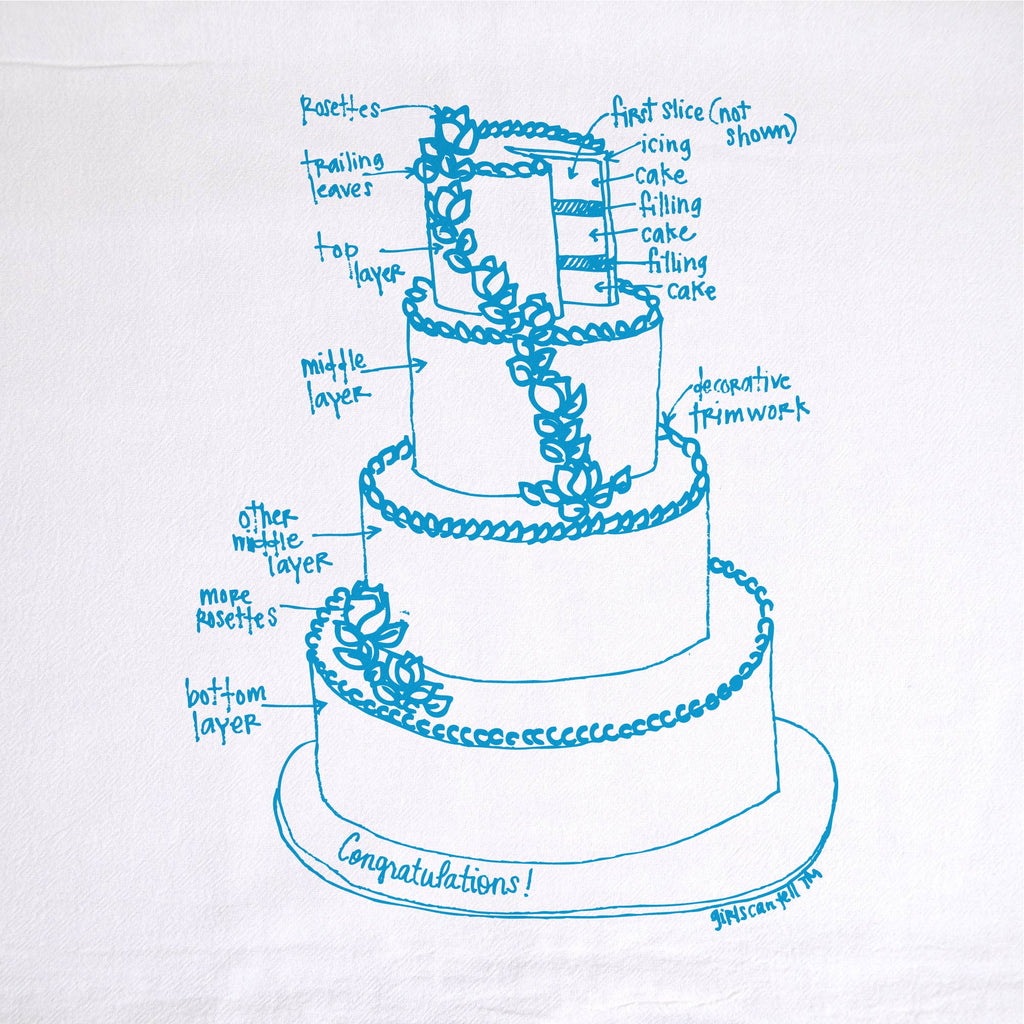 rosettes
first slice (not
shown)
icing
trailing
leaves
cake
filling
cake
top
layer
filling
cake
middle
layer
decorative
trimwork
other
middle
layer
more
rosettes
bottom
layer
Congratulations!
girlscantell TM